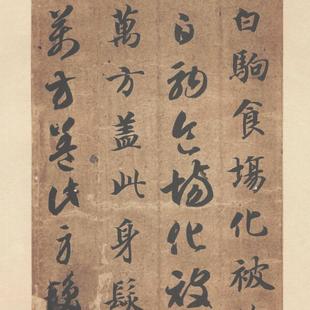 白駒食塲化被
白駒食場化被
萬方蓋此身髮
萬方蓋此身髮